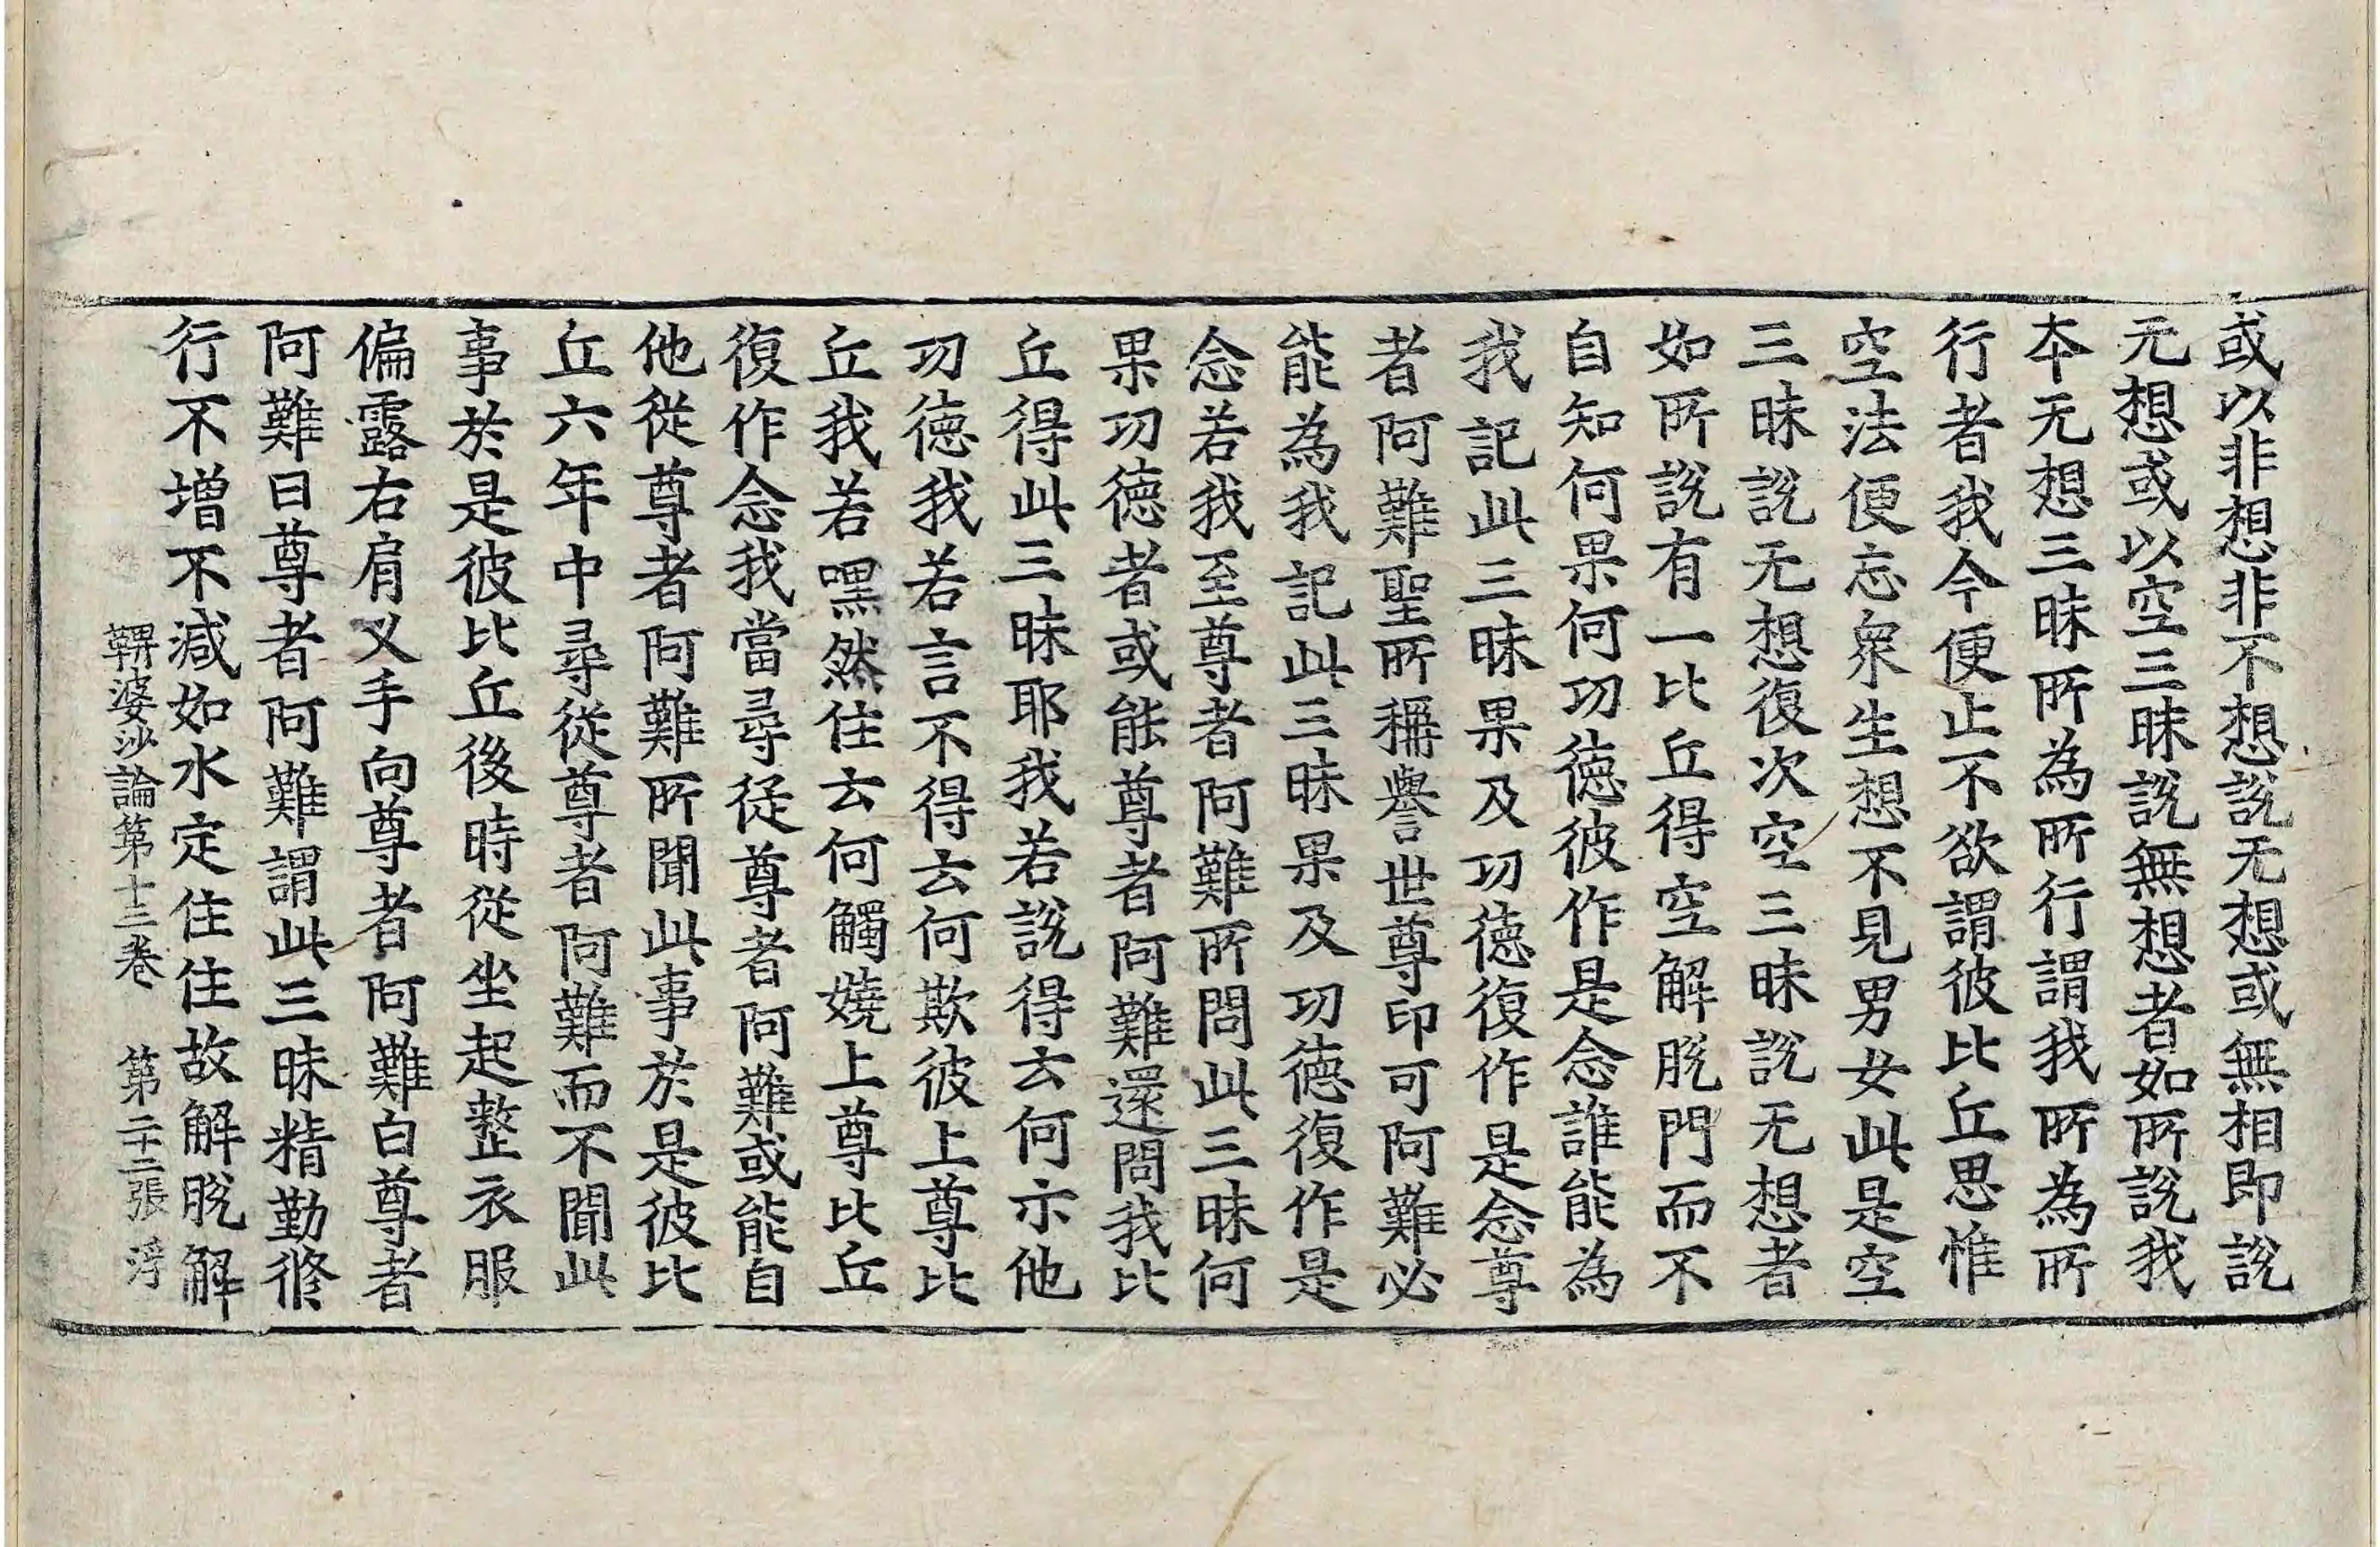 或以非想非不想說无想或無相即說
无想或以空三昧說無想者如所說我
夲无想三昧所為所行謂我所為所
行者我今便止不欲謂彼比丘思惟
空法便忘衆生想不見男女此是空
三昧說无想復次空三昧說无想者
如所說有一比丘得空解脫門而不
自知何果何功德彼作是念誰能為
我記此三昧果及功德復作是念尊
者阿難聖所稱譽世尊印可阿難必
能為我記此三昧果及功德復作是
念若我至尊者阿難所問此三昧何
果功德者或能尊者阿難還問我比
丘得此三昧耶我若說得云何示他
功德我若言不得云何欺彼上尊比
丘我若嘿然住云何觸嬈上尊比丘
復作念我當尋從尊者阿難或能自
他從尊者阿難所聞此事於是彼比
丘六年中尋從尊者阿難而不聞此
事於是彼比丘後時從坐起整衣服
偏露右肩叉手向尊者阿難白尊者
阿難曰尊者阿難謂此三昧精勤修
行不增不減如水定住住故解脫解
鞞婆沙論第十三卷 第二十二張 浮